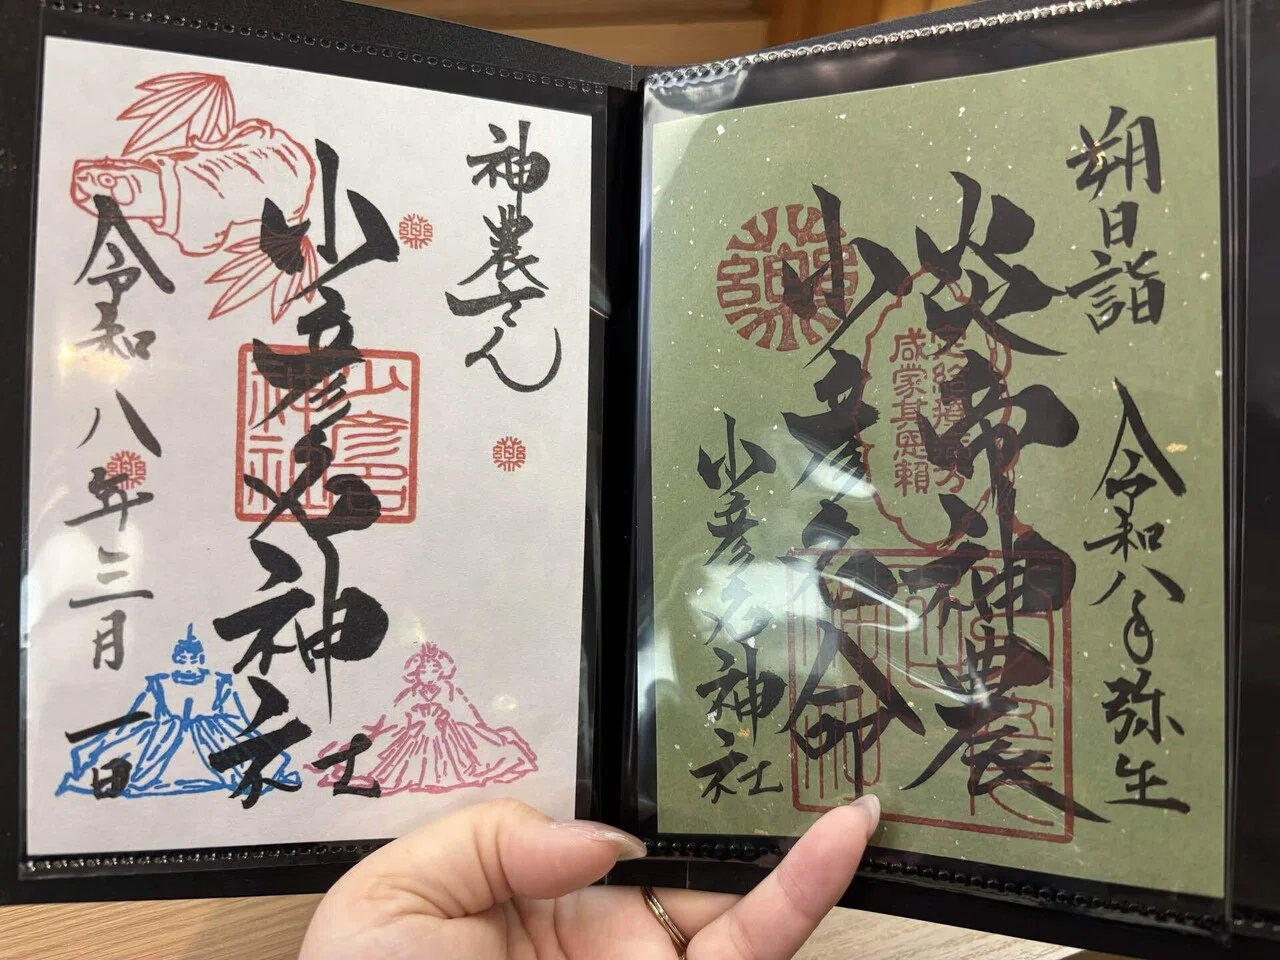 神農さん
少彦名神社
少彦名神社
令和八年三月一日
朔日詣
令和八年弥生
炎帝神農
少彦名命
咸蒙其恩頼
少彦名神社